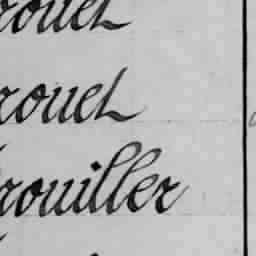 rouet
rouet
rouiller